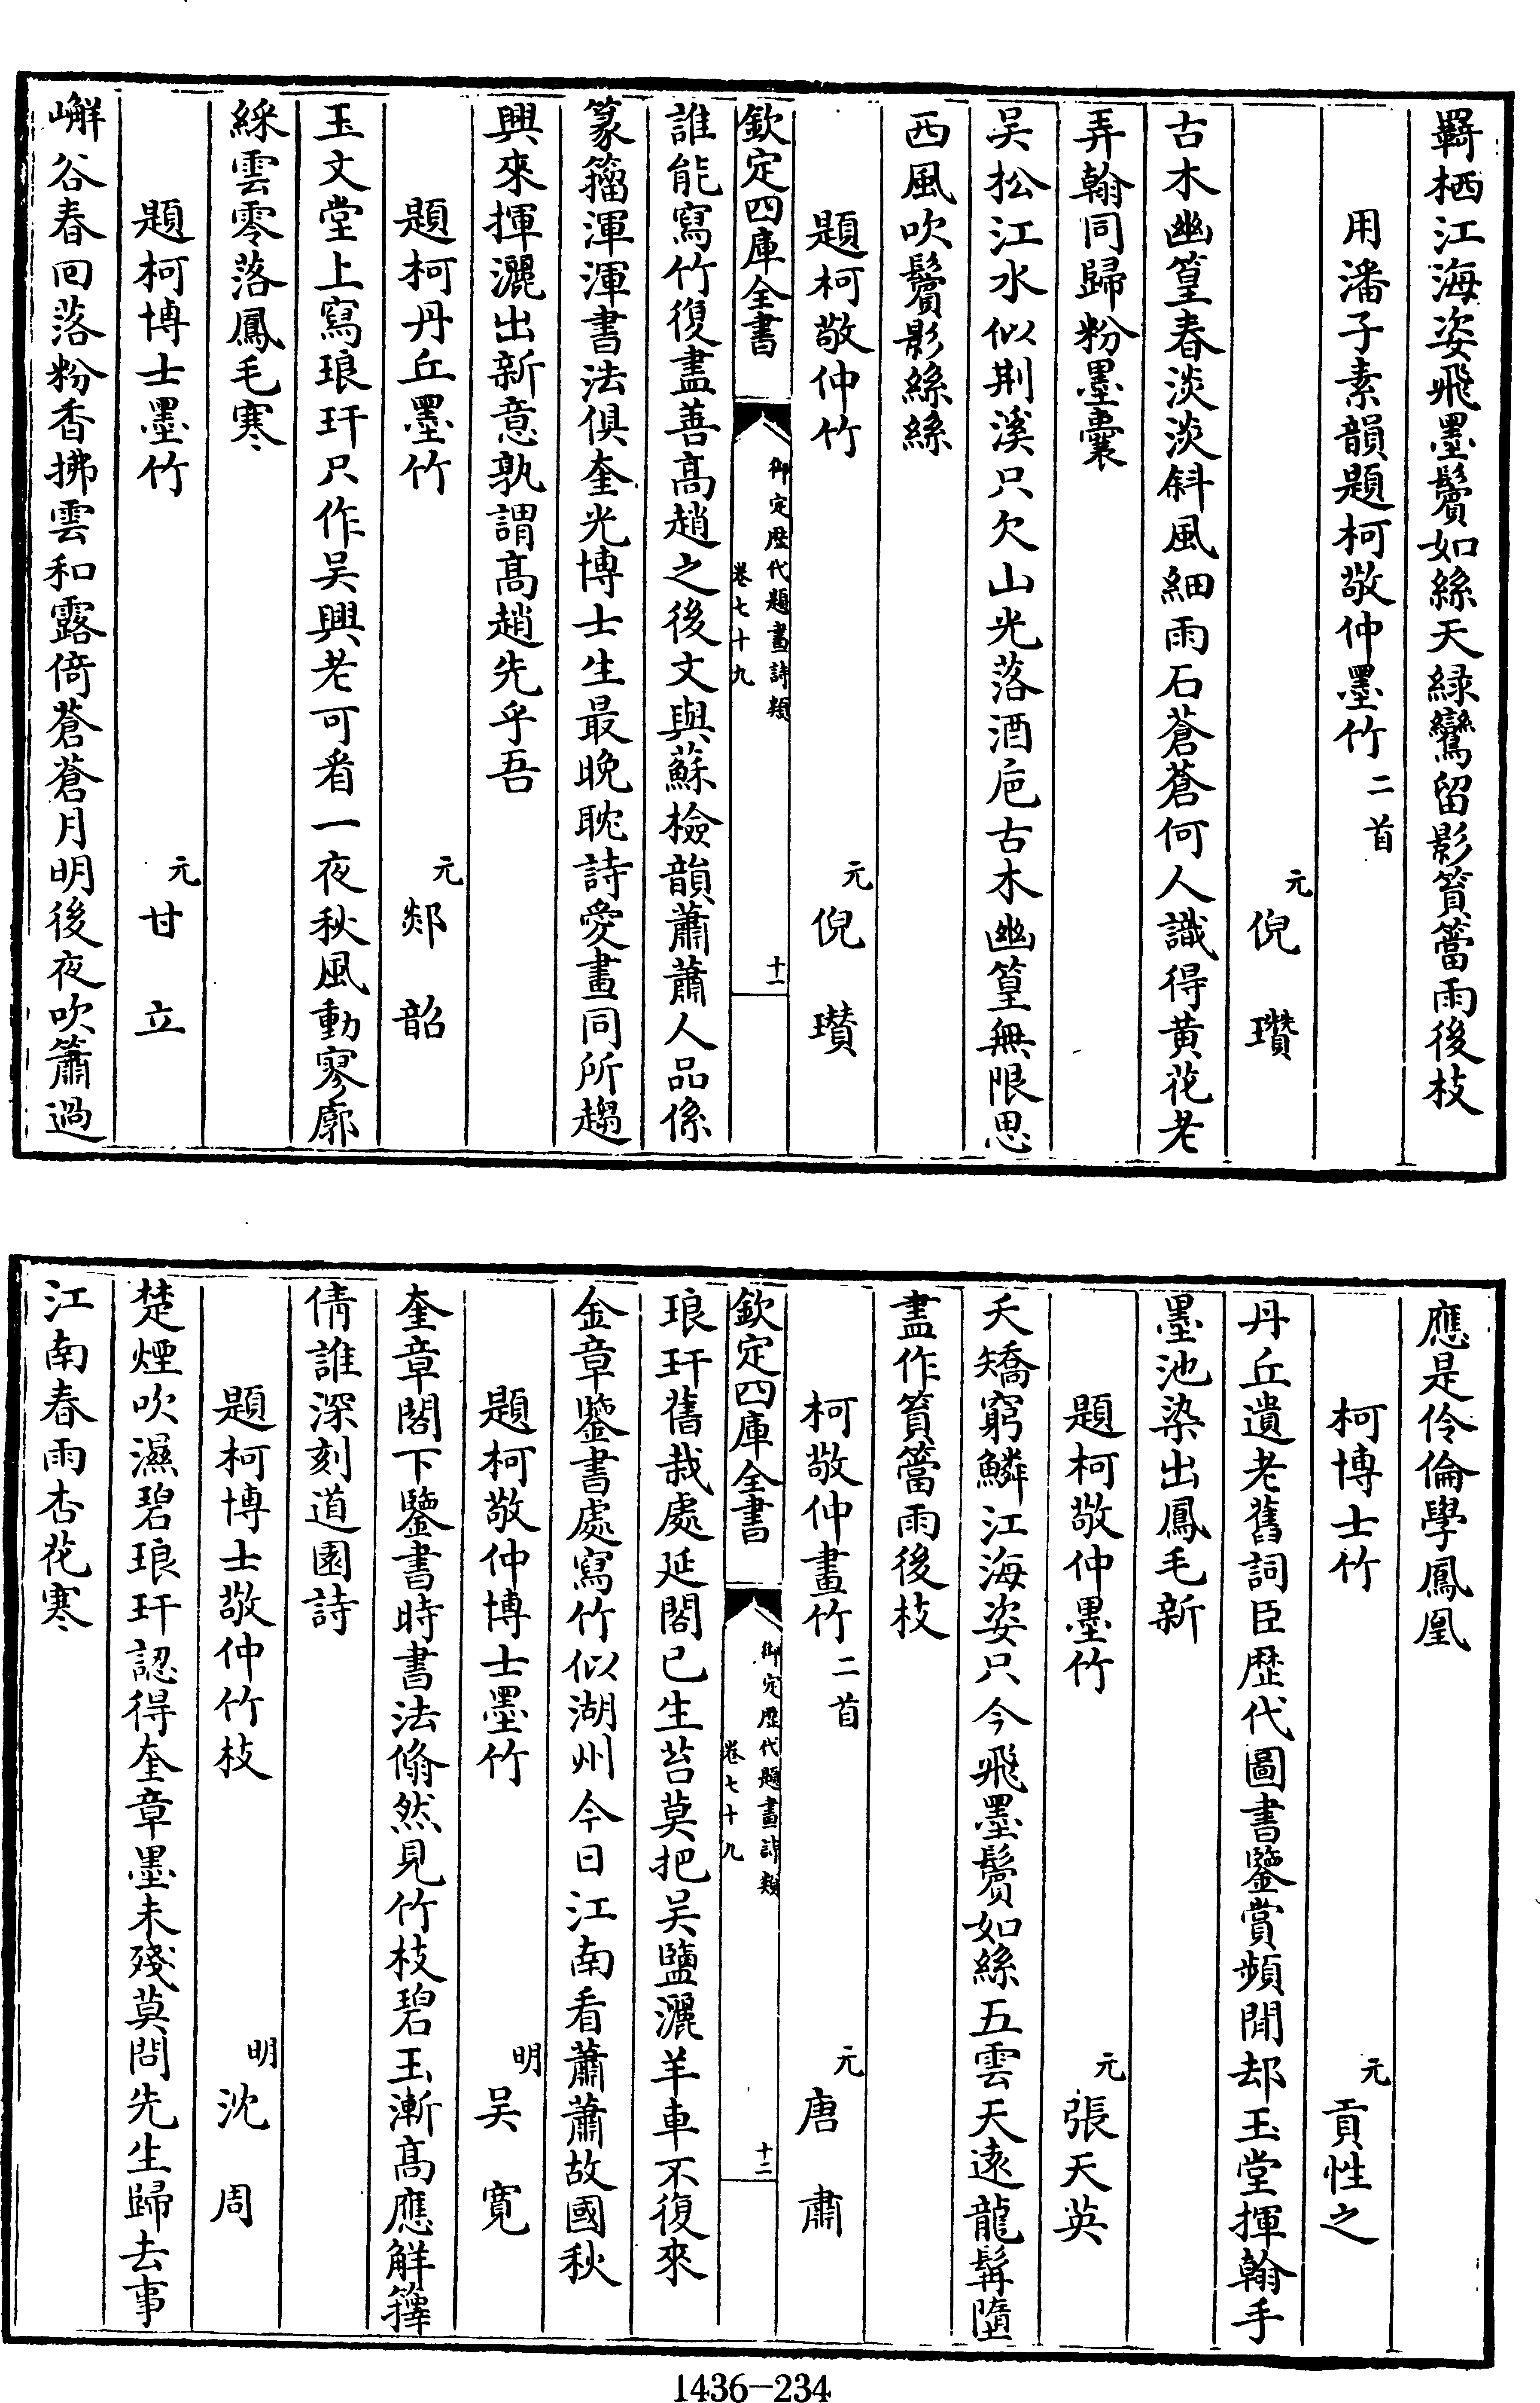 羇栖江海姿飛墨鬢如絲天緑鸞留影篔簹雨後枝
用潘子素韻題柯敬仲墨竹二首
元倪瓚
古木幽篁春淡淡斜風細雨石蒼蒼何人識得黄花老
弄翰同歸粉墨囊
吴松江水似荆溪只欠山光落酒巵古木幽篁無限思
西風吹鬢影絲絲
題柯敬仲竹 元倪瓚
欽定四庫全書 御定歴代題畫詩類卷七十九 十一
誰能寫竹復盡善髙趙之後文與蘇檢韻蕭蕭人品係
篆籀渾渾書法俱奎光博士生最晚耽詩愛畫同所趨
興來揮灑出新意孰謂髙趙先乎吾
題柯丹丘墨竹 元郯韶
玉文堂上寫琅玕只作吴興老可看一夜秋風動寥廓
綵雲零落鳳毛寒
題柯博士墨竹 元甘立
嶰谷春回落粉香拂雲和露倚蒼蒼月明後夜吹簫過
應是伶倫學鳳凰
柯博士竹 元貢性之
丹丘遺老舊詞臣歴代圖書鑒賞頻閒却玉堂揮翰手
墨池染出鳳毛新
題柯敬仲墨竹 元張天英
夭矯窮鱗江海姿只今飛墨鬢如絲五雲天逺龍髯墮
盡作篔簹雨後枝
柯敬仲畫竹二首 元唐肅
欽定四庫全書 御定歴代題畫詩類卷七十九 十二
琅玕舊栽處延閣已生苔莫把吴鹽灑羊車不復來
金章鑒書處寫竹似湖州今日江南看蕭蕭故國秋
題柯敬仲博士墨竹 明吴寛
奎章閣下鑒書時書法翛然見竹枝碧玉漸髙應解籜
倩誰深刻道園詩
題柯博士敬仲竹枝 明沈周
楚煙吹濕碧琅玕認得奎章墨未殘莫問先生歸去事
江南春雨杏花寒
1436-234